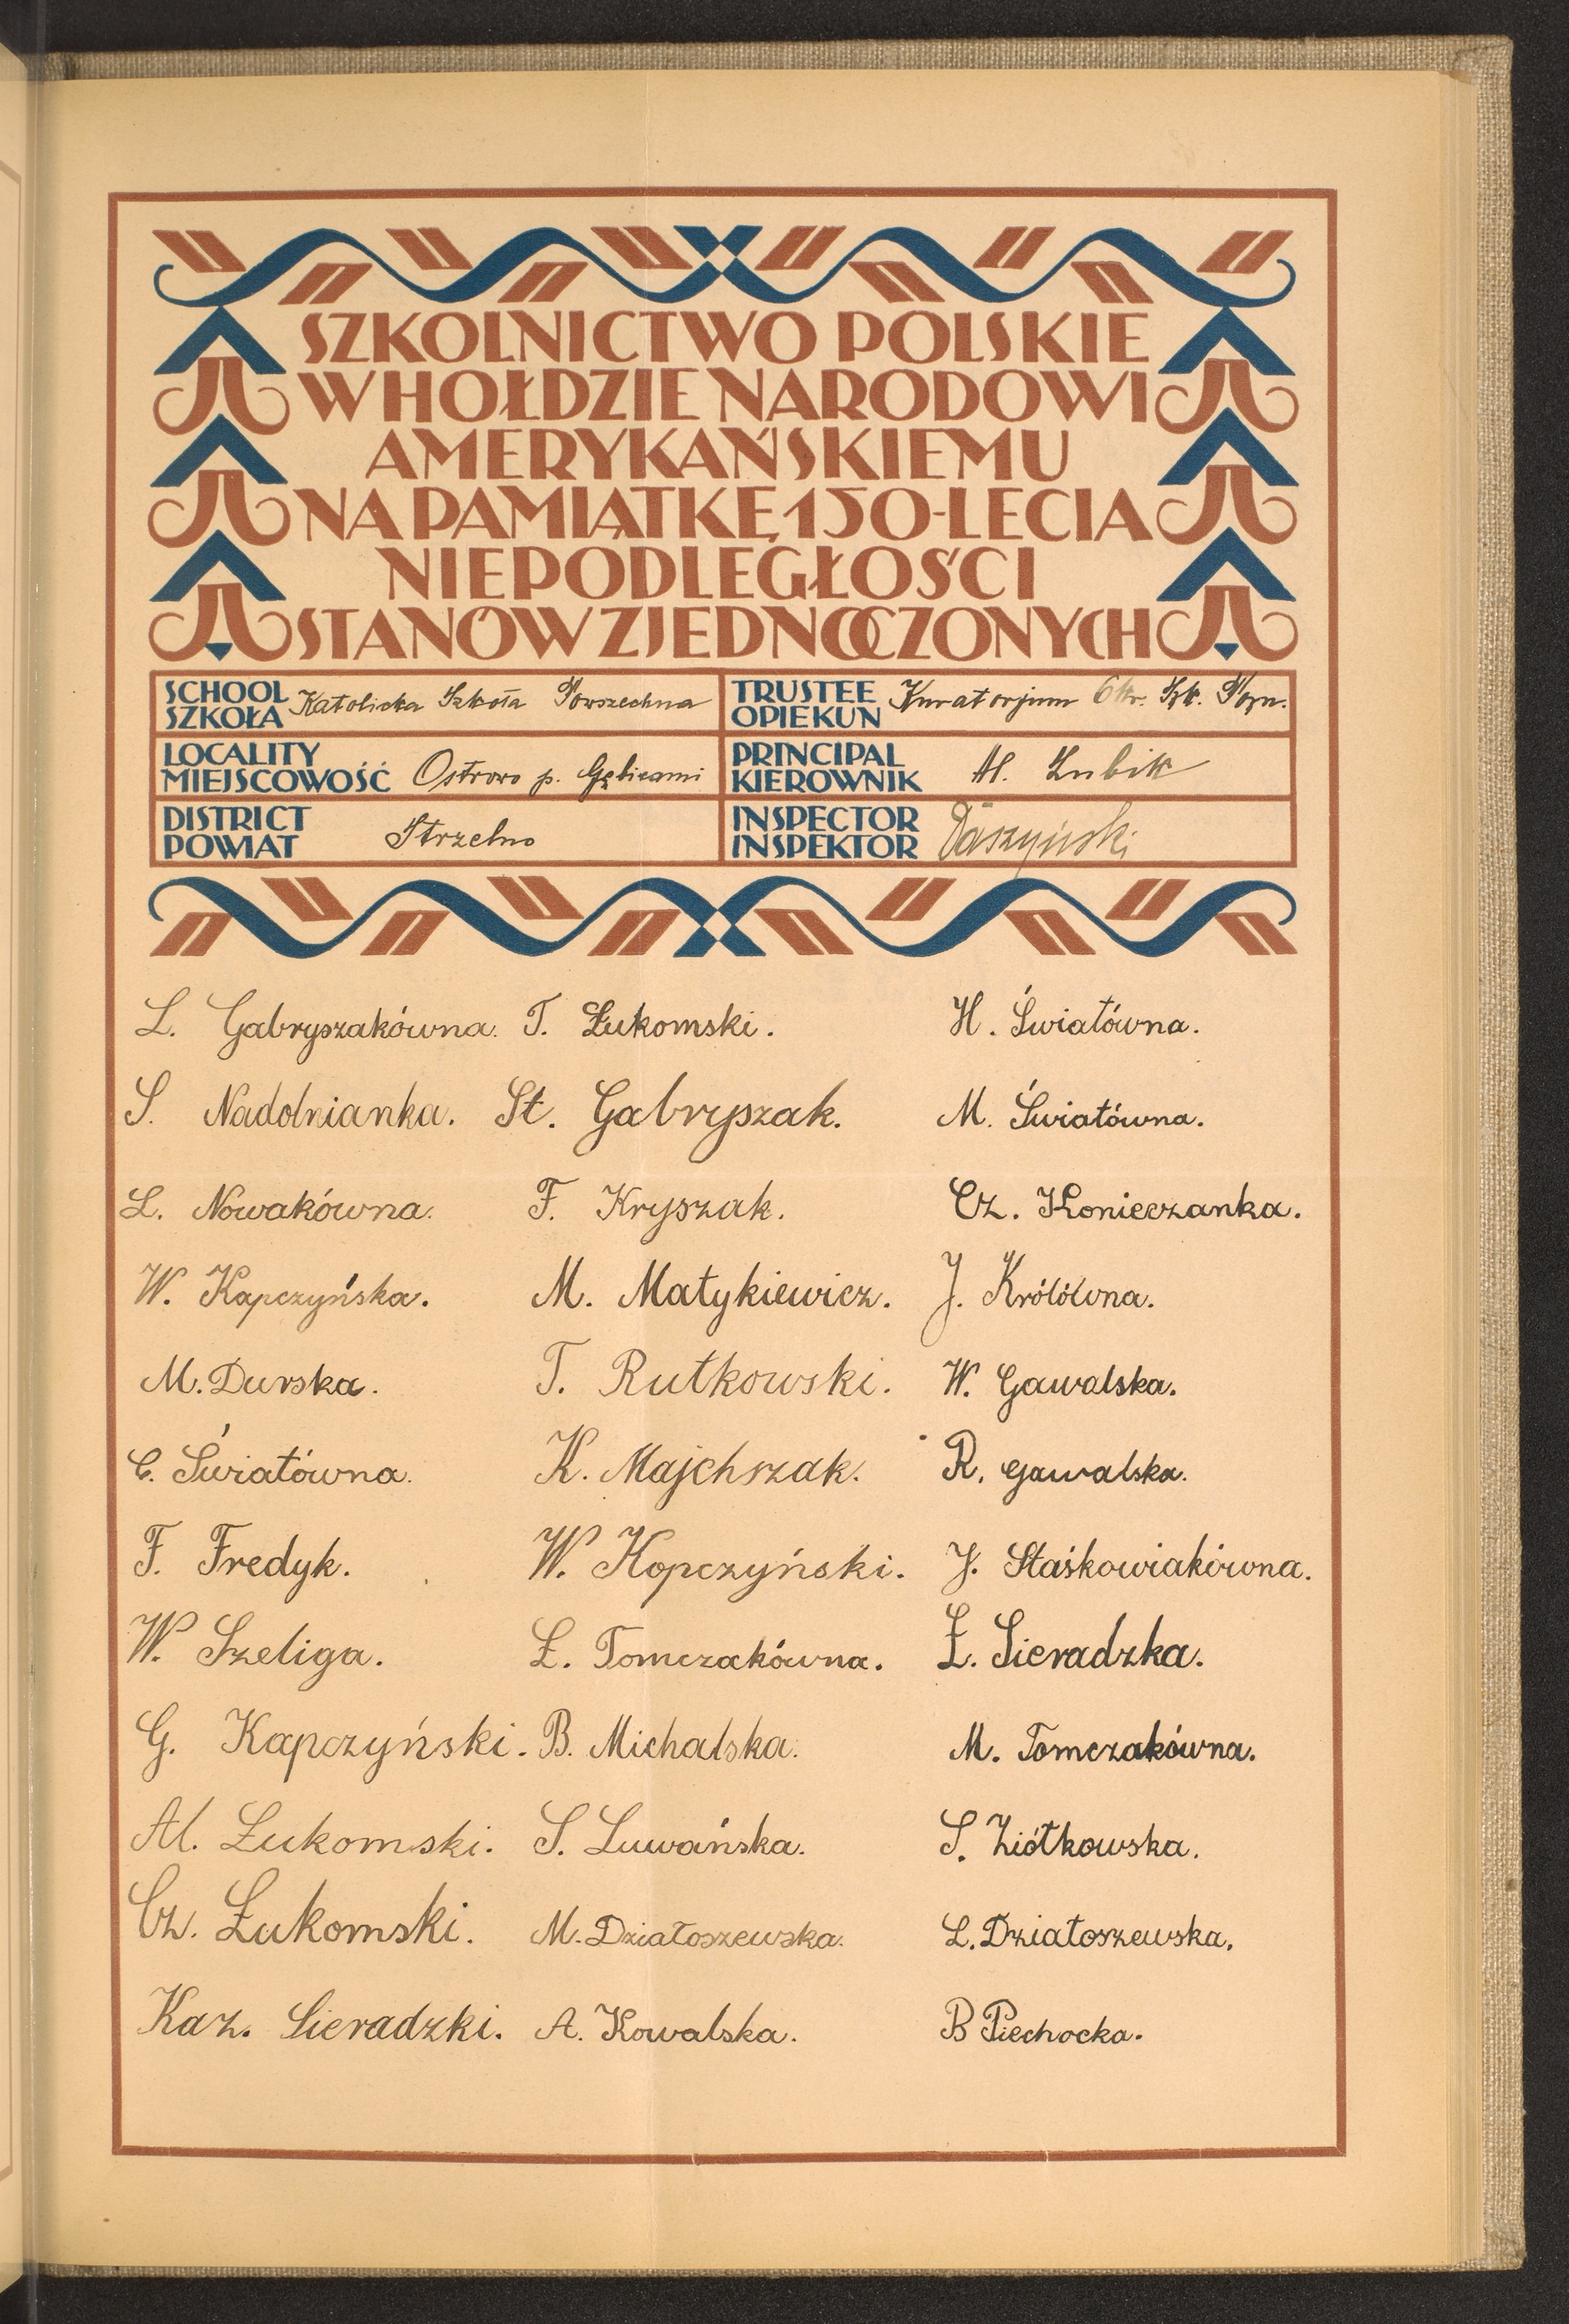 SZKOLNICTWO POLSKIE
W HOŁDZIE NARODOWI
AMERYKAŃSKIEMU
NA PAMIĄTKĘ 150-LECIA
NIEPODLEGŁOŚCI
STANÓW ZJEDNOCZONYCH
SCHOOL
SZKOŁA
Katolicka Szkoła Powszechna
TRUSTEE
OPIEKUN
Kuratorjum Okr. Szk. Pozn.
LOCALITY
MIEJSCOWOŚĆ
Ostrowo p. Gębicami
PRINCIPAL
KIEROWNIK
Al. Zubik
DISTRICT
POWIAT
Strzelno
INSPECTOR
INSPEKTOR
Daszyński
L. Gabryszakówna. T. Łukomski. H. Światówna.
S. Nadolnianka. St. Gabryszak. M. Światówna.
L. Nowakówna. F. Kryszak. Cz. Konieczanka.
W. Kapczyńska. M. Matykiewicz. J. Królówna.
M. Durska. T. Rutkowski. W. Gawalska.
C. Światówna. K. Majchszak. R. Gawalska.
F. Fredyk. W. Kopczyński. J. Staśkowiakówna.
W. Szeliga. Ł. Tomczakówna. Ł. Sieradzka.
G. Kapczyński. B. Michalska. M. Tomczakówna.
Al. Łukomski. S. Luwańska. S. Ziółkowska.
Cz. Łukomski. M. Działoszewska. L. Działoszewska.
Kaz. Sieradzki. A. Kowalska. B Piechocka.